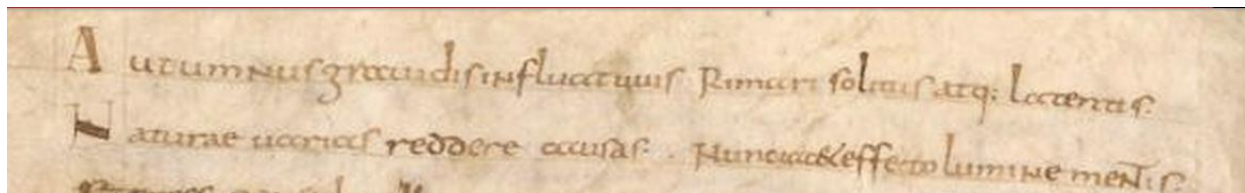 Autumnus grauidis influat uuis Rimari solitus atq; latentis.
Naturae uarias reddere causas. Nunc iac& effeto lumine mentis